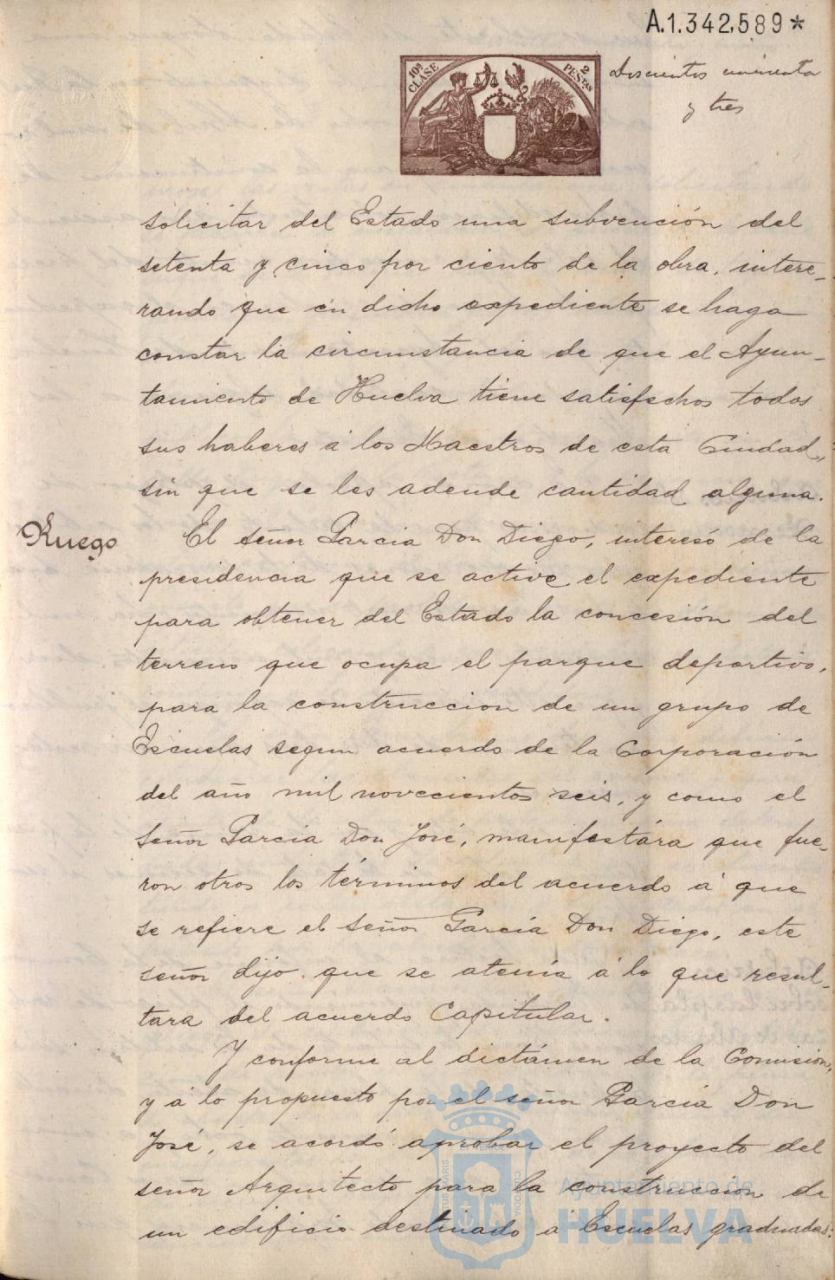 A.1.342.589*
10ª CLASE
2 PESTAS
Doscientos noventa
y tres
solicitar del Estado una subvención del
setenta y cinco por ciento de la obra, intere-
rando que en dicho expediente se haga
constar la circunstancia de que el Ayun-
tamiento de Huelva tiene satisfechos todos
sus haberes á los Maestros de esta Ciudad,
sin que se les adeude cantidad alguna.
Ruego
El señor Garcia Don Diego, interesó de la
presidencia que se active el expediente
para obtener del Estado la concesión del
terreno que ocupa el parque deportivo,
para la construccion de un grupo de
Escuelas segun acuerdo de la Corporación
del año mil novecientos seis, y como el
señor Garcia Don José, manifestára que fue-
ron otros los términos del acuerdo á que
se refiere el señor García Don Diego, este
señor dijo que se atenía á lo que resul-
tara del acuerdo Capitular.
Y conforme al dictámen de la Comisión,
y á lo propuesto por el señor Garcia Don
José, se acordó aprobar el proyecto del
señor Arquitecto para la construccion de
un edificio destinado á Escuelas graduadas
Ayuntamiento de
HUELVA